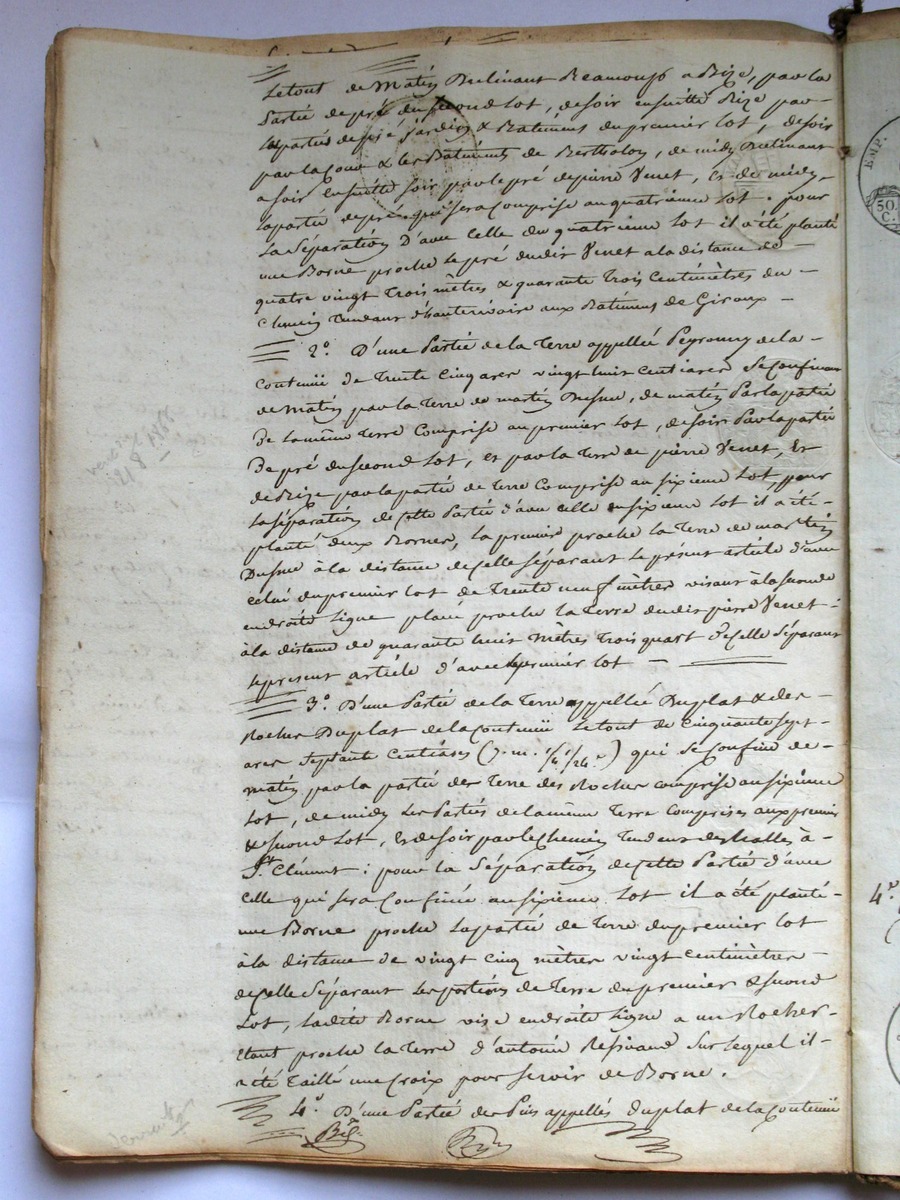 Le tout de matin Inclinant Beaucoup a Bize, par la
Partie de pré du second Lot, de soir ensuitte Bize par
les parties de pré jardin & Batiment du premier Lot, de soir
par la Cour & les Batiments de Bertholon, de midy Inclinant
a soir ensuitte soir par le pré de pierre Venet, Et de midy
la partie de pré qui sera Comprise au quatrieme Lot. pour
La Séparation D'avec Celle du quatrieme Lot il a été planté
une Borne proche le pré dudit Venet a la distance de
quatre vingt Trois mètres & quarante Trois Centimètres du
Chemin Tendant d'hauterivoire aux Batiments de Giraux
2.° D'une Partie de la Terre appellée Peyroumy de la
Contenüe de Trente Cinq ares vingt huit Centiares Se Confinant
de matin par la Terre de Dusne, de matin Par la partie
De la même Terre Comprise au premier Lot, de soir Par la partie
De pré du second Lot, et par la Terre de pierre Venet, Et
de Bize par la partie de Terre Comprise au sixieme Lot, pour
La séparation de Cette Partie d'avec celle du sixieme Lot il a été
planté deux Bornes, la premiere proche la Terre de
Dusne à la distance de Celle séparant le présent article d'avec
celui du premier Lot de Trente neuf mètres visant à la seconde
en droite Ligne placée proche la Terre dudit pierre Venet
à la distance de quarante huit mètres Trois quart de Celle Séparant
le present article d'avec le premier Lot
3.° D'une Partie de la Terre appellée Duplat & des
Roches Duplat de la Contenüe Le tout de Cinquante sept
ares septante Centiares (7. m. 1/4 1/24.e) qui se Confine de
matin par la partie de Terre des Roches comprise au sixieme
Lot, de midy Les Parties de la même Terre Comprises aux premier
& second Lot, Et de soir par le Chemin Tendant des halles à
St. Clément : pour la Séparation de Cette Partie d'avec
Celle qui sera Confinée au sixieme Lot il a été planté
une Borne proche la partie de Terre du premier Lot
à la distance de vingt Cinq mètres vingt centimètres
de Celle Séparant les portions de Terre du premier & second
Lot, ladite Borne vise en droite Ligne a un Rocher
Etant proche la Terre d'antoine sur Lequel il
a été Taillé une Croix pour servir de Borne.
4.° D'une Partie des Pins appellés Duplat de la Contenüe
4.e
EMP.
50.
C.